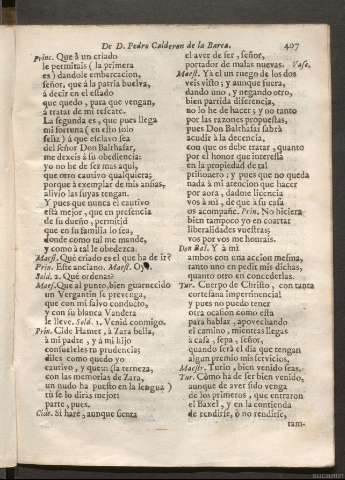 De D. Pedro Calderon de la Barca. 407
Princ. Que à un criado
le permitais (la primera
es) dandole embarcacion,
señor, que à la patria buelva,
à decir en el estado
que quedo, para que vengan,
à tratar de mi rescate.
La segunda es, que pues llega
mi fortuna (en esto solo
feliz) à que esclavo sea
del señor Don Balthasar,
me dexeis à su obediencia:
yo no he de ser mas aqui,
que otro cautivo qualquiera;
porque à exemplar de mis ansias,
alivio las suyas tengan.
Y pues que nunca el cautivo
està mejor, que en presencia
de su dueño, permitid
que en su familia lo sea,
donde como tal me mande,
y como à tal le obedezca.
Maest. Què criado es el que ha de ir?
Prin. Este anciano. Maest. Oy.
Sold. 2. Què ordenas?
Maes. Que al punto, bien guarnecido
un Vergantin se prevenga,
que con mi salvo conducto,
y con su blanca Vandera
le lleve. Sold. 2. Venid conmigo.
Prin. Cide Hamet, à Zara bella,
à mi padre, y à mi hijo
consueleles tu prudencia;
diles como quedo yo
cautivo, y que
con las memorias de Zara,
un nudo ha puesto en la lengua)
tù se lo diràs mejor:
parte, pues.
Cide. Si harè, aunque sienta
el aver de ser, señor,
portador de malas nuevas. Vase.
Maest. Yà el un ruego de los dos
veis visto; y aunque fuera,
dando uno, y negando otro,
bien partida diferencia,
no lo he de hacer; y no tanto
por las razones propuestas,
pues Don Balthasar sabrà
acudir à la decencia,
con que os debe tratar, quanto
por el honor que interessa
en la propiedad de tal
prisionero; y pues que no queda
nada à mi atencion que hacer
por aora, dadme licencia
vos à mi, de que à su casa
os acompañe. Prin. No hiciera
bien tampoco yo en coartar
liberalidades vuestras;
vos por vos me honrais.
Don Bal. Y à mi
ambos con una accion mesma,
tanto uno en pedir mis dichas,
quanto otro en concederlas.
Tur. Cuerpo de Christo, con tanta
cortesana impertinencia!
y pues no puedo tener
otra ocasion como esta
para hablar, aprovechando
el camino, mientras llegas
à casa, sepa, señor,
quando serà el dia que tengan
algun premio mis servicios.
Maestr. Turin, bien venido seas.
Tur. Còmo ha de ser bien venido,
aunque de aver sido venga
de los primeros, que entraron
el Baxel, y en la contienda
de rendirse, ò no rendirse,
tam-
sucamin